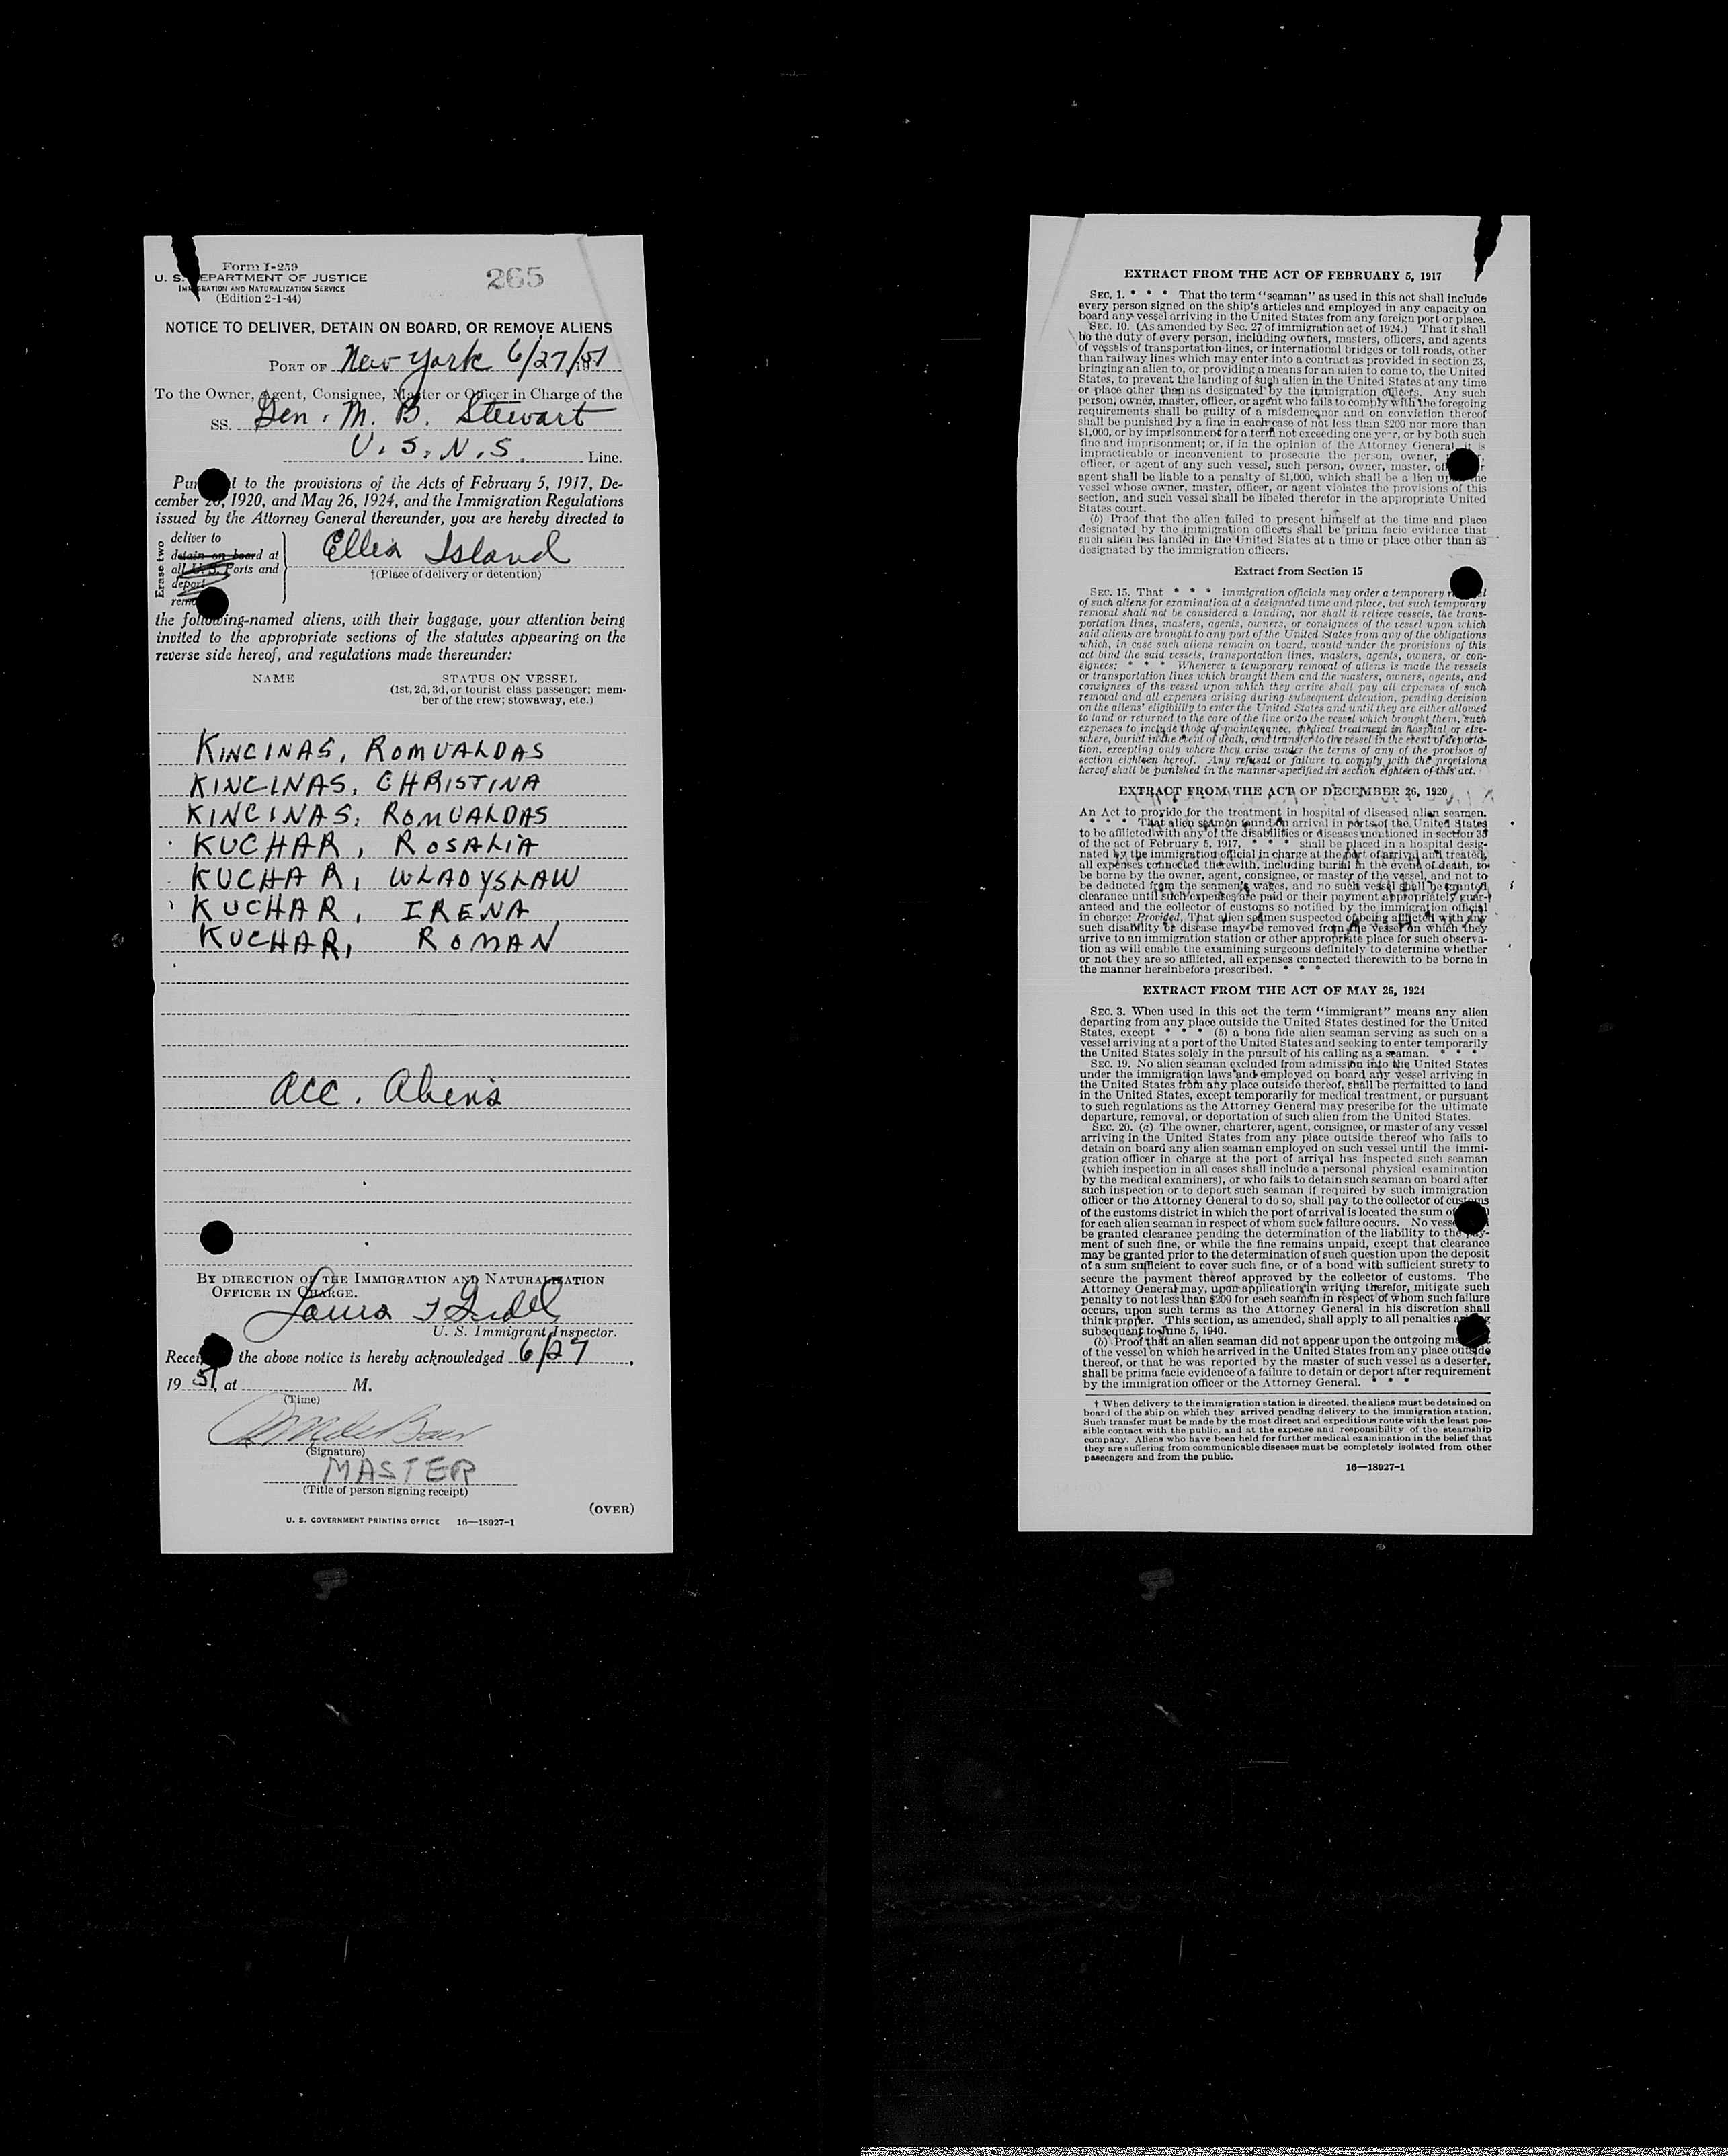 Form I-259
U. S. DEPARTMENT OF JUSTICE
IMMIGRATION AND NATURALIZATION SERVICE
(Edition 2-1-44)
265
NOTICE TO DELIVER, DETAIN ON BOARD, OR REMOVE ALIENS
PORT OF New York 6/27/51
To the Owner, Agent, Consignee, Master or Officer in Charge of the
SS. Gen. M. B. Stewart
U. S. N. S. Line.
Pursuant to the provisions of the Acts of February 5, 1917, De-
cember 26, 1920, and May 26, 1924, and the Immigration Regulations
issued by the Attorney General thereunder, you are hereby directed to
Erase two
deliver to
detain on board at
all U. S. Ports and
deport
remove
Ellis Island
†(Place of delivery or detention)
the following-named aliens, with their baggage, your attention being
invited to the appropriate sections of the statutes appearing on the
reverse side hereof, and regulations made thereunder:
NAME STATUS ON VESSEL
(1st, 2d, 3d, or tourist class passenger; mem-
ber of the crew; stowaway, etc.)
KINCINAS, ROMUALDAS
KINCINAS, CHRISTINA
KINCINAS, ROMUALDAS
KUCHAR, ROSALIA
KUCHAR, WLADYSLAW
KUCHAR, IRENA
KUCHAR, ROMAN
Acc. Aliens
BY DIRECTION OF THE IMMIGRATION AND NATURALIZATION
OFFICER IN CHARGE.
U. S. Immigrant Inspector.
Receipt of the above notice is hereby acknowledged 6/27,
1951, at M.
(Time)
(Signature)
MASTER
(Title of person signing receipt)
(OVER)
U. S. GOVERNMENT PRINTING OFFICE 16—18927-1
EXTRACT FROM THE ACT OF FEBRUARY 5, 1917
SEC. 1. * * * That the term "seaman" as used in this act shall include
every person signed on the ship's articles and employed in any capacity on
board any vessel arriving in the United States from any foreign port or place.
SEC. 10. (As amended by Sec. 27 of immigration act of 1924.) That it shall
be the duty of every person, including owners, masters, officers, and agents
of vessels of transportation lines, or international bridges or toll roads, other
than railway lines which may enter into a contract as provided in section 23,
bringing an alien to, or providing a means for an alien to come to, the United
States, to prevent the landing of such alien in the United States at any time
or place other than as designated by the immigration officers. Any such
person, owner, master, officer, or agent who fails to comply with the foregoing
requirements shall be guilty of a misdemeanor and on conviction thereof
shall be punished by a fine in each case of not less than $200 nor more than
$1,000, or by imprisonment for a term not exceeding one year, or by both such
fine and imprisonment; or, if in the opinion of the Attorney General, it is
impracticable or inconvenient to prosecute the person, owner, master,
officer, or agent of any such vessel, such person, owner, master, officer, or
agent shall be liable to a penalty of $1,000, which shall be a lien upon the
vessel whose owner, master, officer, or agent violates the provisions of this
section, and such vessel shall be libeled therefor in the appropriate United
States court.
(b) Proof that the alien failed to present himself at the time and place
designated by the immigration officers shall be prima facie evidence that
such alien has landed in the United States at a time or place other than as
designated by the immigration officers.
Extract from Section 15
SEC. 15. That * * * immigration officials may order a temporary removal
of such aliens for examination at a designated time and place, but such temporary
removal shall not be considered a landing, nor shall it relieve vessels, the trans-
portation lines, masters, agents, owners, or consignees of the vessel upon which
said aliens are brought to any port of the United States from any of the obligations
which, in case such aliens remain on board, would under the provisions of this
act bind the said vessels, transportation lines, masters, agents, owners, or con-
signees: * * * Whenever a temporary removal of aliens is made the vessels
or transportation lines which brought them and the masters, owners, agents, and
consignees of the vessel upon which they arrive shall pay all expenses of such
removal and all expenses arising during subsequent detention, pending decision
on the aliens' eligibility to enter the United States and until they are either allowed
to land or returned to the care of the line or to the vessel which brought them, such
expenses to include those of maintenance, medical treatment in hospital or else-
where, burial in the event of death, and transfer to the vessel in the event of deporta-
tion, excepting only where they arise under the terms of any of the provisos of
section eighteen hereof. Any refusal or failure to comply with the provisions
hereof shall be punished in the manner specified in section eighteen of this act.
EXTRACT FROM THE ACT OF DECEMBER 26, 1920
An Act to provide for the treatment in hospital of diseased alien seamen.
* * * That alien seamen found on arrival in ports of the United States
to be afflicted with any of the disabilities or diseases mentioned in section 35
of the act of February 5, 1917, * * * shall be placed in a hospital desig-
nated by the immigration official in charge at the port of arrival and treated,
all expenses connected therewith, including burial in the event of death, to
be borne by the owner, agent, consignee, or master of the vessel, and not to
be deducted from the seamen's wages, and no such vessel shall be granted
clearance until such expenses are paid or their payment appropriately guar-
anteed and the collector of customs so notified by the immigration official
in charge: Provided, That alien seamen suspected of being afflicted with any
such disability or disease may be removed from the vessel on which they
arrive to an immigration station or other appropriate place for such observa-
tion as will enable the examining surgeons definitely to determine whether
or not they are so afflicted, all expenses connected therewith to be borne in
the manner hereinbefore prescribed. * * *
EXTRACT FROM THE ACT OF MAY 26, 1924
SEC. 3. When used in this act the term "immigrant" means any alien
departing from any place outside the United States destined for the United
States, except * * * (5) a bona fide alien seaman serving as such on a
vessel arriving at a port of the United States and seeking to enter temporarily
the United States solely in the pursuit of his calling as a seaman. * * *
SEC. 19. No alien seaman excluded from admission into the United States
under the immigration laws and employed on board any vessel arriving in
the United States from any place outside thereof, shall be permitted to land
in the United States, except temporarily for medical treatment, or pursuant
to such regulations as the Attorney General may prescribe for the ultimate
departure, removal, or deportation of such alien from the United States.
SEC. 20. (a) The owner, charterer, agent, consignee, or master of any vessel
arriving in the United States from any place outside thereof who fails to
detain on board any alien seaman employed on such vessel until the immi-
gration officer in charge at the port of arrival has inspected such seaman
(which inspection in all cases shall include a personal physical examination
by the medical examiners), or who fails to detain such seaman on board after
such inspection or to deport such seaman if required by such immigration
officer or the Attorney General to do so, shall pay to the collector of customs
of the customs district in which the port of arrival is located the sum of
for each alien seaman in respect of whom such failure occurs. No vessel
be granted clearance pending the determination of the liability to the pay-
ment of such fine, or while the fine remains unpaid, except that clearance
may be granted prior to the determination of such question upon the deposit
of a sum sufficient to cover such fine, or of a bond with sufficient surety to
secure the payment thereof approved by the collector of customs. The
Attorney General may, upon application in writing therefor, mitigate such
penalty to not less than $200 for each seaman in respect of whom such failure
occurs, upon such terms as the Attorney General in his discretion shall
think proper. This section, as amended, shall apply to all penalties arising
subsequent to June 5, 1940.
(b) Proof that an alien seaman did not appear upon the outgoing manifest
of the vessel on which he arrived in the United States from any place outside
thereof, or that he was reported by the master of such vessel as a deserter,
shall be prima facie evidence of a failure to detain or deport after requirement
by the immigration officer or the Attorney General. * * *
† When delivery to the immigration station is directed, the aliens must be detained on
board of the ship on which they arrived pending delivery to the immigration station.
Such transfer must be made by the most direct and expeditious route with the least pos-
sible contact with the public, and at the expense and responsibility of the steamship
company. Aliens who have been held for further medical examination in the belief that
they are suffering from communicable diseases must be completely isolated from other
passengers and from the public.
16—18927-1